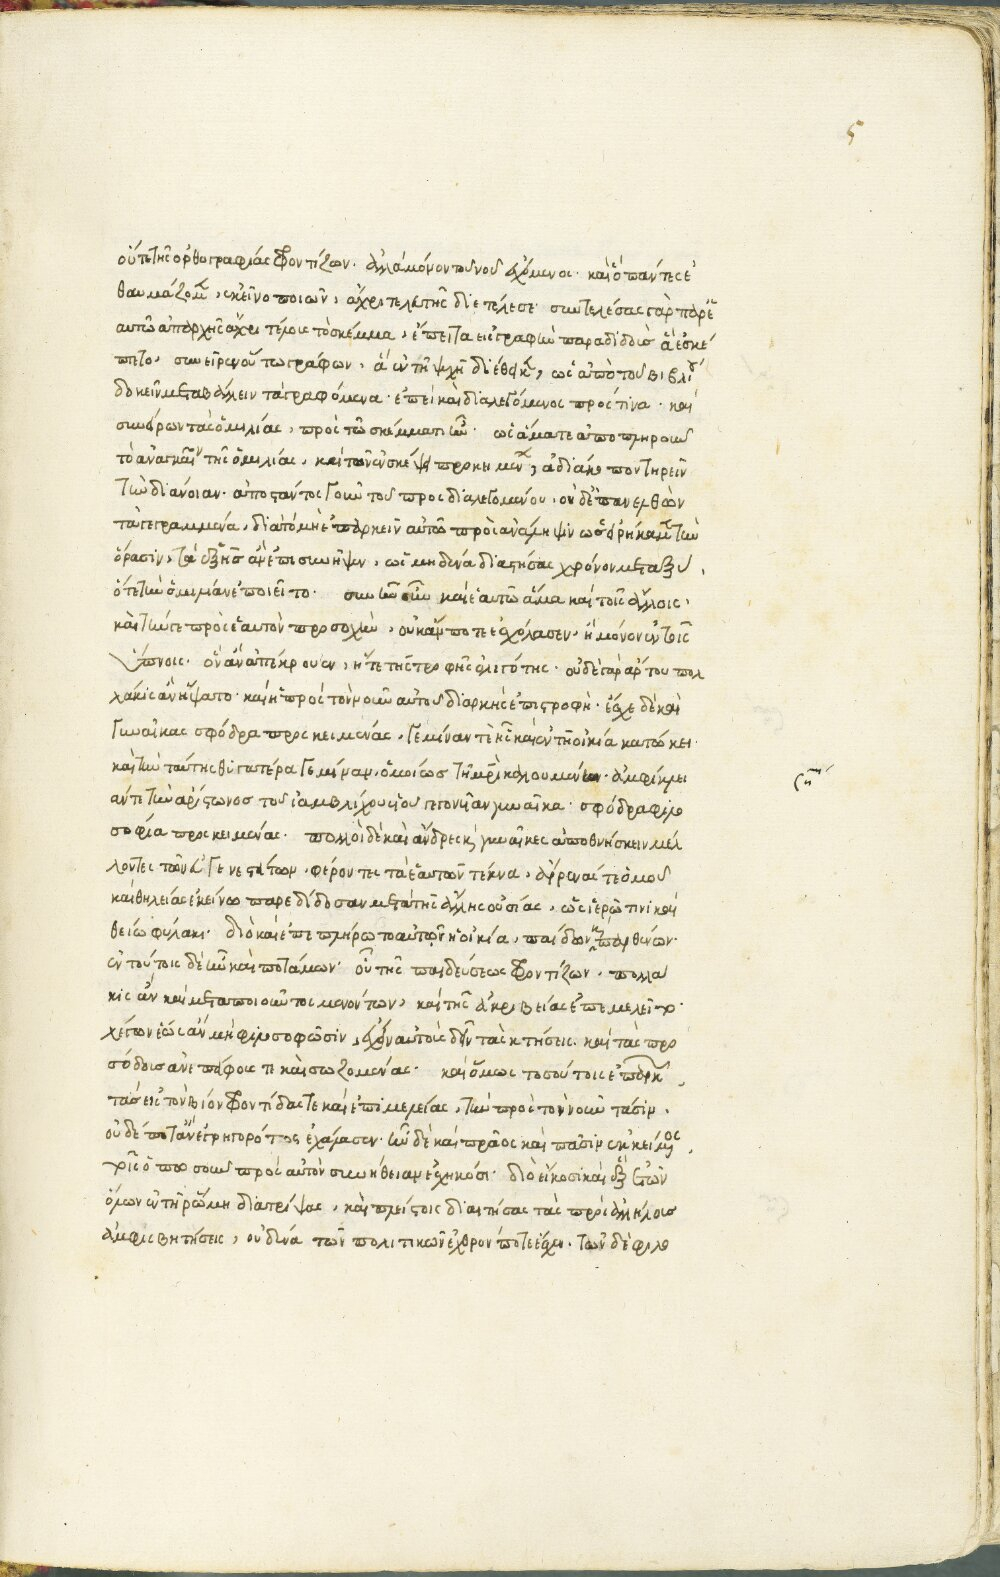 5
οὔτε τῆς ὀρθογραφίας φροντίζων· ἀλλὰ μόνον τοῦ νοῦ ἐχόμενος· καὶ ὃ πάντες ἐ
θαυμάζομεν, ἐκεῖνο ποιῶν, ἄχρι τελευτῆς διετέλεσε· συντελέσας γὰρ παρ'
αὐτῷ ἀπαρχῆς ἄχρι τέλους τὸ σκέμμα, ἔπειτα εἰς γραφὴν παραδιδοὺς ἃ ἐσκέ
πτετο, συνεῖρεν οὕτω γράφων, ἃ ἐν τῇ ψυχῇ διέθηκεν, ὡς ἀπὸ τοῦ βιβλίου
δοκεῖν μεταβάλλειν τὰ γραφόμενα· ἐπεὶ καὶ διαλεγόμενος πρός τινα· καὶ
συνείρων τὰς ὁμιλίας, πρὸς τῷ σκέμματι ἦν· ὡς ἅμα τε ἀποπληροῦν
τὸ ἀναγκαῖον τῆς ὁμιλίας, καὶ τῶν ἐν σκέψει προκειμένων, ἀδιάκοπον τηρεῖν
τὴν διάνοιαν· ἀποστάντος γοῦν τοῦ προσδιαλεγομένου, οὐδ' ἐπανελθὼν
τὰ γεγραμμένα, διὰ τὸ μὴ ἐπαρκεῖν αὐτῷ πρὸς ἀνάληψιν ὡς εἰρήκαμεν τὴν
ὅρασιν, τὰ ἑξῆς ἂν ἐπισυνῆψεν, ὡς μηδένα διαστήσας χρόνον μεταξὺ
ὅτε τὴν ὁμιλίαν ἐποιεῖτο· συνῆν οὖν καὶ ἑαυτῷ ἅμα καὶ τοῖς ἄλλοις,
καὶ τήν γε πρὸς ἑαυτὸν προσοχὴν, οὐκ ἄν ποτε ἐχάλασεν, ἢ μόνον ἐν τοῖς
ὕπνοις· ὃν ἂν ἀπέκρουεν, ἥ τε τῆς τροφῆς ὀλιγότης· οὐδὲ γὰρ ἄρτου πολ
λάκις ἂν ἥψατο· καὶ ἡ πρὸς τὸν νοῦν αὐτοῦ διαρκὴς ἐπιστροφή· ἔσχε δὲ καὶ
γυναῖκας σφόδρα προσκειμένας, γεμίναν τε ἧς καὶ ἐν τῇ οἰκίᾳ κατῴκει·
καὶ τὴν ταύτης θυγατέρα γεμίναν, ὁμοίως τῇ μητρὶ καλουμένην· ἀμφίκλει
άν τε τὴν ἀρίστωνος τοῦ ἰαμβλίχου υἱοῦ γεγονυῖαν γυναῖκα· σφόδρα φιλο
σοφίᾳ προσκειμένας· πολλοὶ δὲ καὶ ἄνδρες καὶ γυναῖκες ἀποθνήσκειν μέλ
λοντες τῶν εὐγενεστάτων, φέροντες τὰ ἑαυτῶν τέκνα, ἄρρενάς τε ὁμοῦ
καὶ θηλείας ἐκείνῳ παρεδίδοσαν μετὰ τῆς ἄλλης οὐσίας, ὡς ἱερῷ τινι καὶ
θείῳ φύλακι· διὸ καὶ ἐπεπλήρωτο αὐτῷ ἡ οἰκία, παίδων καὶ παρθένων·
ἐν τούτοις δὲ ἦν καὶ ποτάμων· οὗ τῆς παιδεύσεως φροντίζων, πολλά
κις ἂν καὶ μεταποιοῦντος
χέγων ἕως ἂν μὴ φιλοσοφῶσιν, ἔχειν αὐτοὺς δεῖν τὰς κτήσεις· καὶ τὰς προ
σόδους ἀνεπάφους τε καὶ σωζομένας· καὶ ὅμως τοσούτοις ἐπαρκῶν
τὰς εἰς τὸν βίον φροντίδας τε καὶ ἐπιμελείας, τὴν πρὸς τὸν νοῦν τάσιν,
οὐδέποτ' ἂν ἐγρηγορότως ἐχάλασεν· ἦν δὲ καὶ πρᾶος καὶ πᾶσιν ἐκκείμενος
τοῖς ὁπωσοῦν πρὸς αὐτὸν συνήθειαν ἐσχηκόσι· διὸ εἴκοσι καὶ ἓξ ἐτῶν
ὅλων ἐν τῇ ῥώμῃ διατρίψας, καὶ πλείστοις διαιτήσας τὰς πρὸς ἀλλήλους
ἀμφισβητήσεις, οὐδένα τῶν πολιτικῶν ἐχθρόν ποτε ἔσχεν· τῶν δὲ φιλο